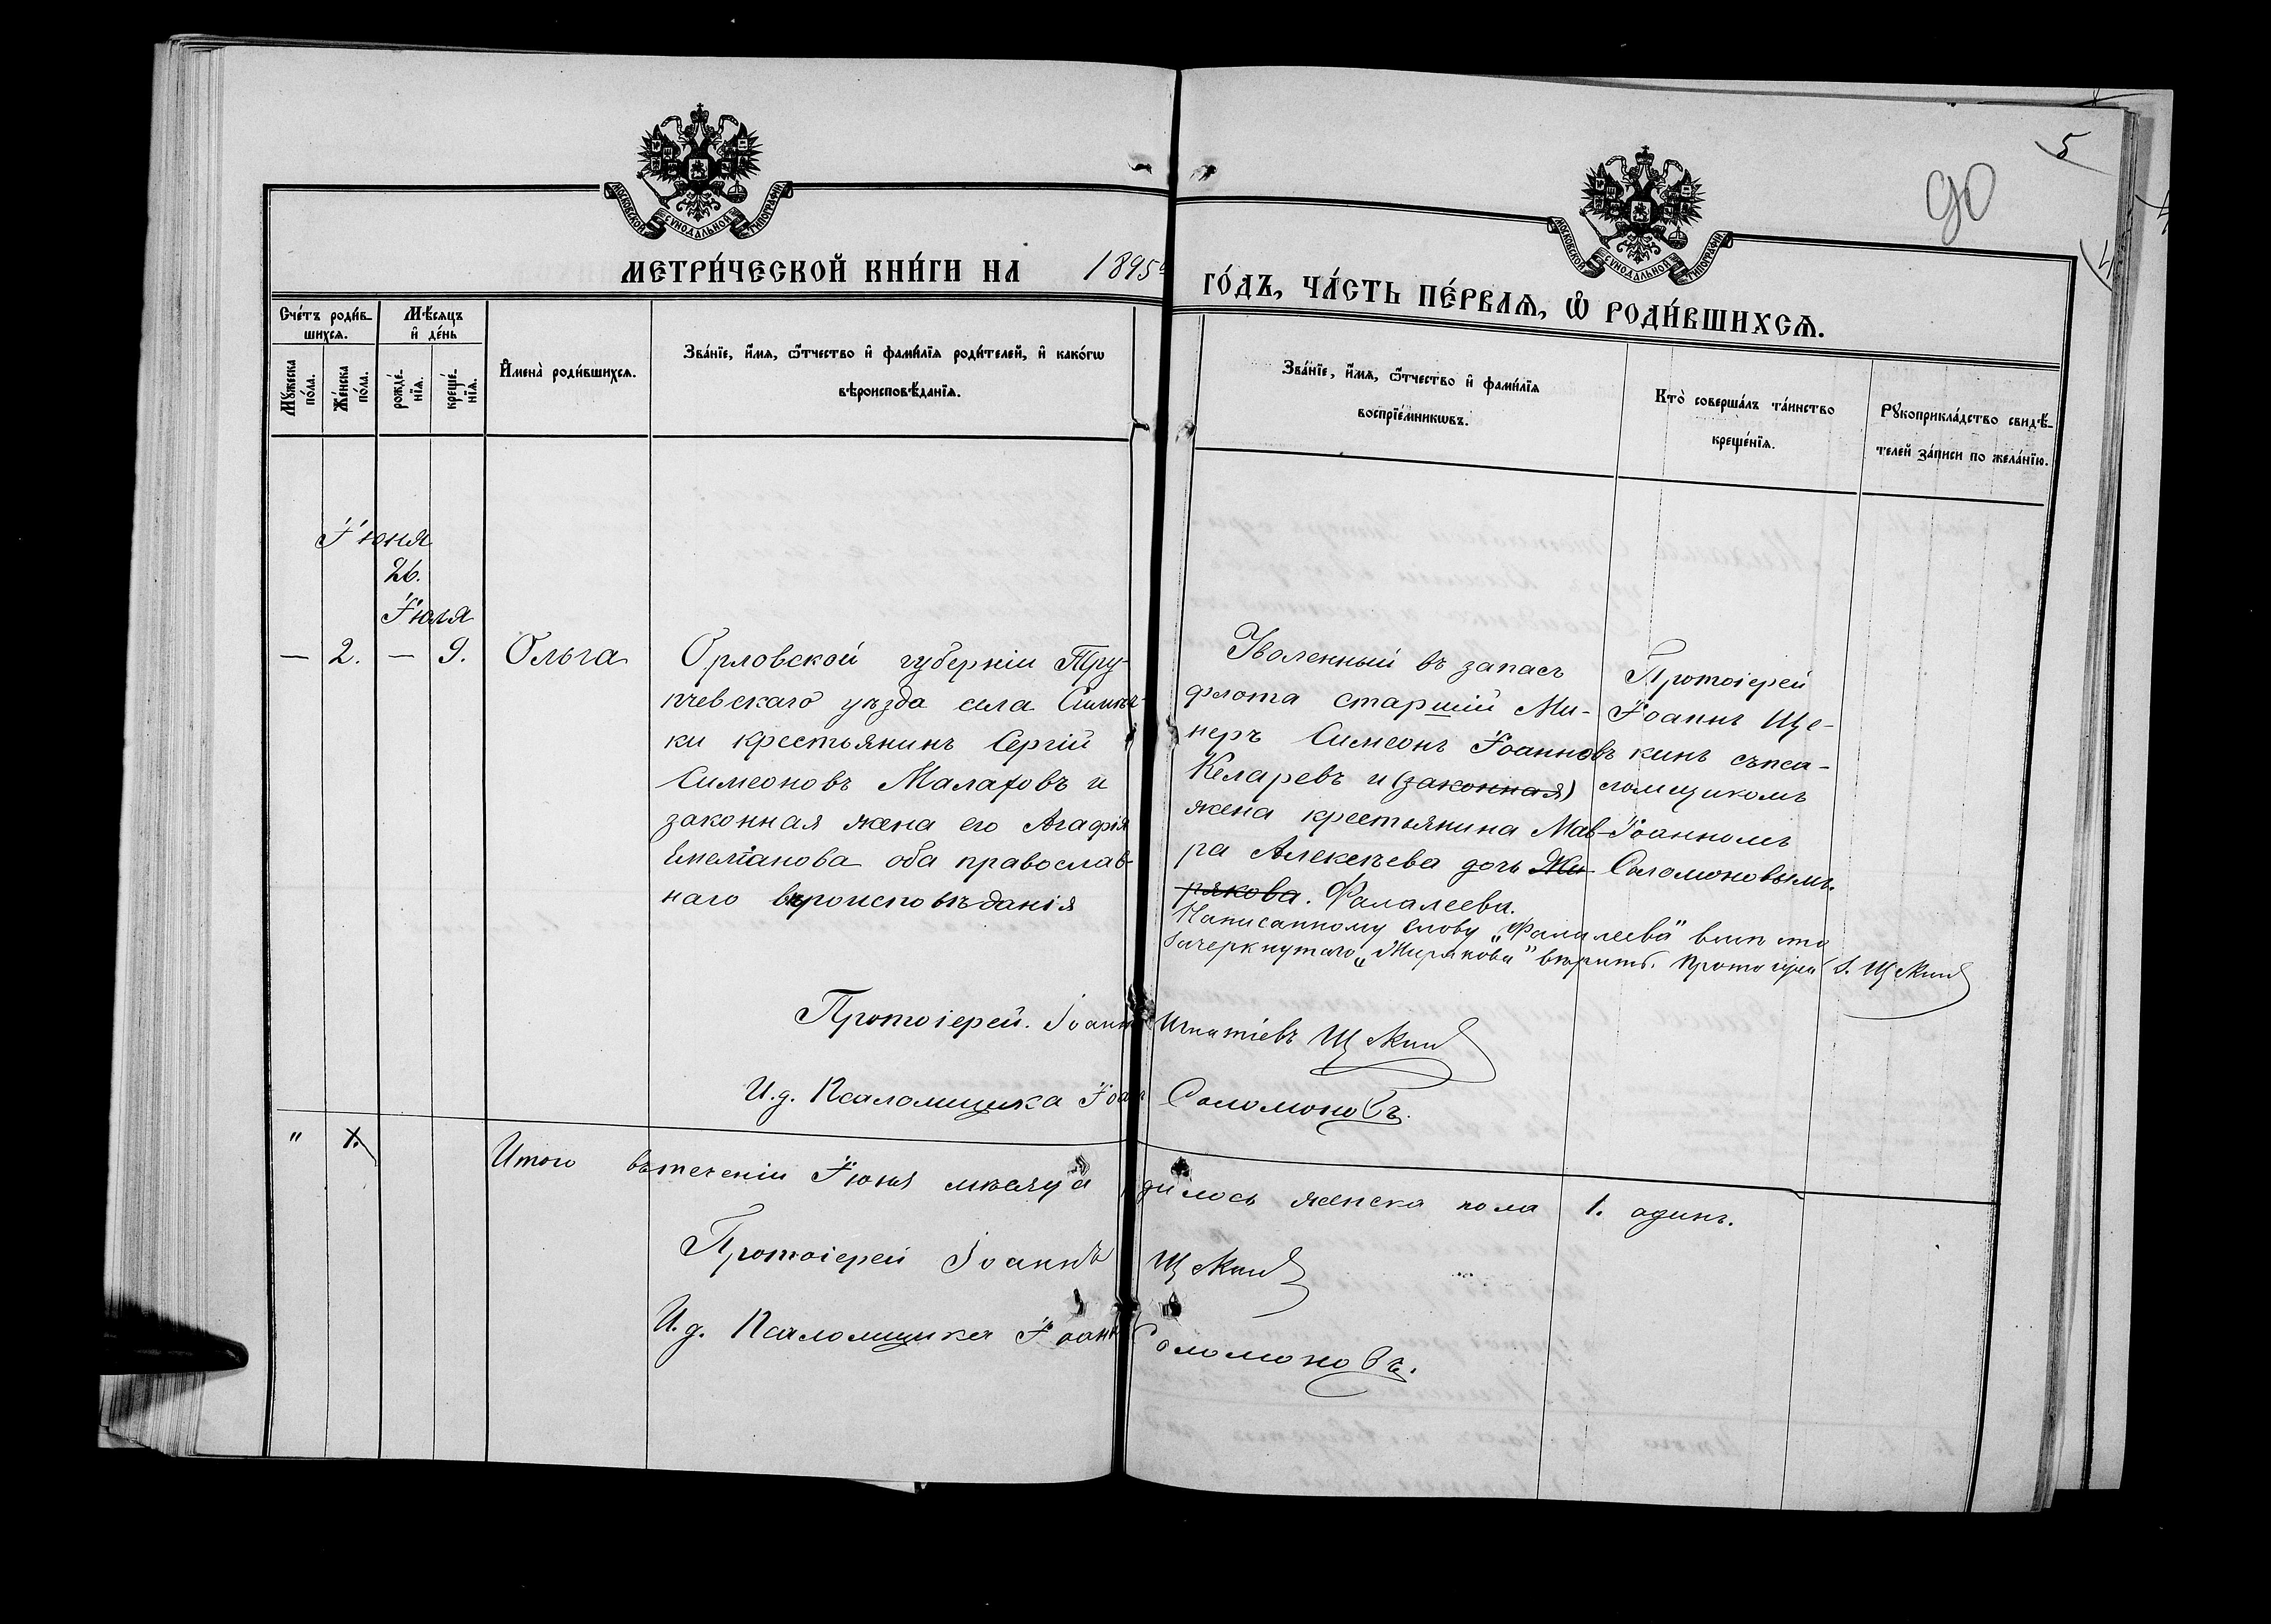 5
90
МОСКОВСКОЙ СѴНОДАЛЬНОЙ ТИПОГРАФІИ
МОСКОВСКОЙ СѴНОДАЛЬНОЙ ТИПОГРАФІИ
МЕТРИ́ЧЕСКОЙ КНИ́ГИ НА 1895й
ГО́ДЪ, ЧА́СТЬ ПЕ́РВАѦ, Ѽ РОДИ́ВШИХСѦ.
Сче́тъ роди́в-
шихсѧ.
Мꙋ́жеска
по́ла.
Же́нска
по́ла.
Мѣ́сѧцъ
и҆ де́нь
рожде́-
нїѧ.
креще́-
нїѧ.
И҆мена̀ роди́вшихсѧ.
Зва́нїе, и҆́мѧ, ѻ҆́тчество и҆ фами́лїѧ роди́телей, и҆ како́гѡ
вѣроисповѣ́данїѧ.
Зва́нїе, и҆́мѧ, ѻ҆́тчество и҆ фами́лїѧ
воспрїе́мникѡвъ.
Кто̀ соверша́лъ та́инство
креще́нїѧ.
Рꙋкоприкла́дство свидѣ́-
телей за́писи по жела́нїю.
Іюня
26.
Іюля
— 2. — 9. Ольга
Орловской губерніи Тру-
бчевскаго уѣзда села
ки крестьянинъ Сергій
Симеоновъ Малаховъ и
законная жена его Агафія
Емеліанова оба православ-
наго вѣроисповѣданія
Уволенный въ запасъ
флота старшій Ми-
неръ Симеонъ Іоанновъ
Келаревъ и (законная)
жена крестьянина Мав-
ра Алексѣева дочь Жи-
рякова. Фалалеева.
Написанному слову „Фалалеева" вмѣсто
зачеркнутаго „Жирякова" вѣрить. Протоіерей І. Щекинъ
Протоіерей
Іоаннъ Ще-
кинъ съ пса-
ломщикомъ
Іоанномъ
Соломоновымъ.
Протоіерей. Іоаннъ Игнатіевъ Щекинъ
И. д. Псаломщика Іоаннъ Соломоновъ.
" 1.
Итого въ теченіи Іюня мѣсяца родилось женска пола 1. одинъ.
Протоіерей Іоаннъ Щекинъ
И. д. Псаломщика Іоаннъ Соломоновъ.